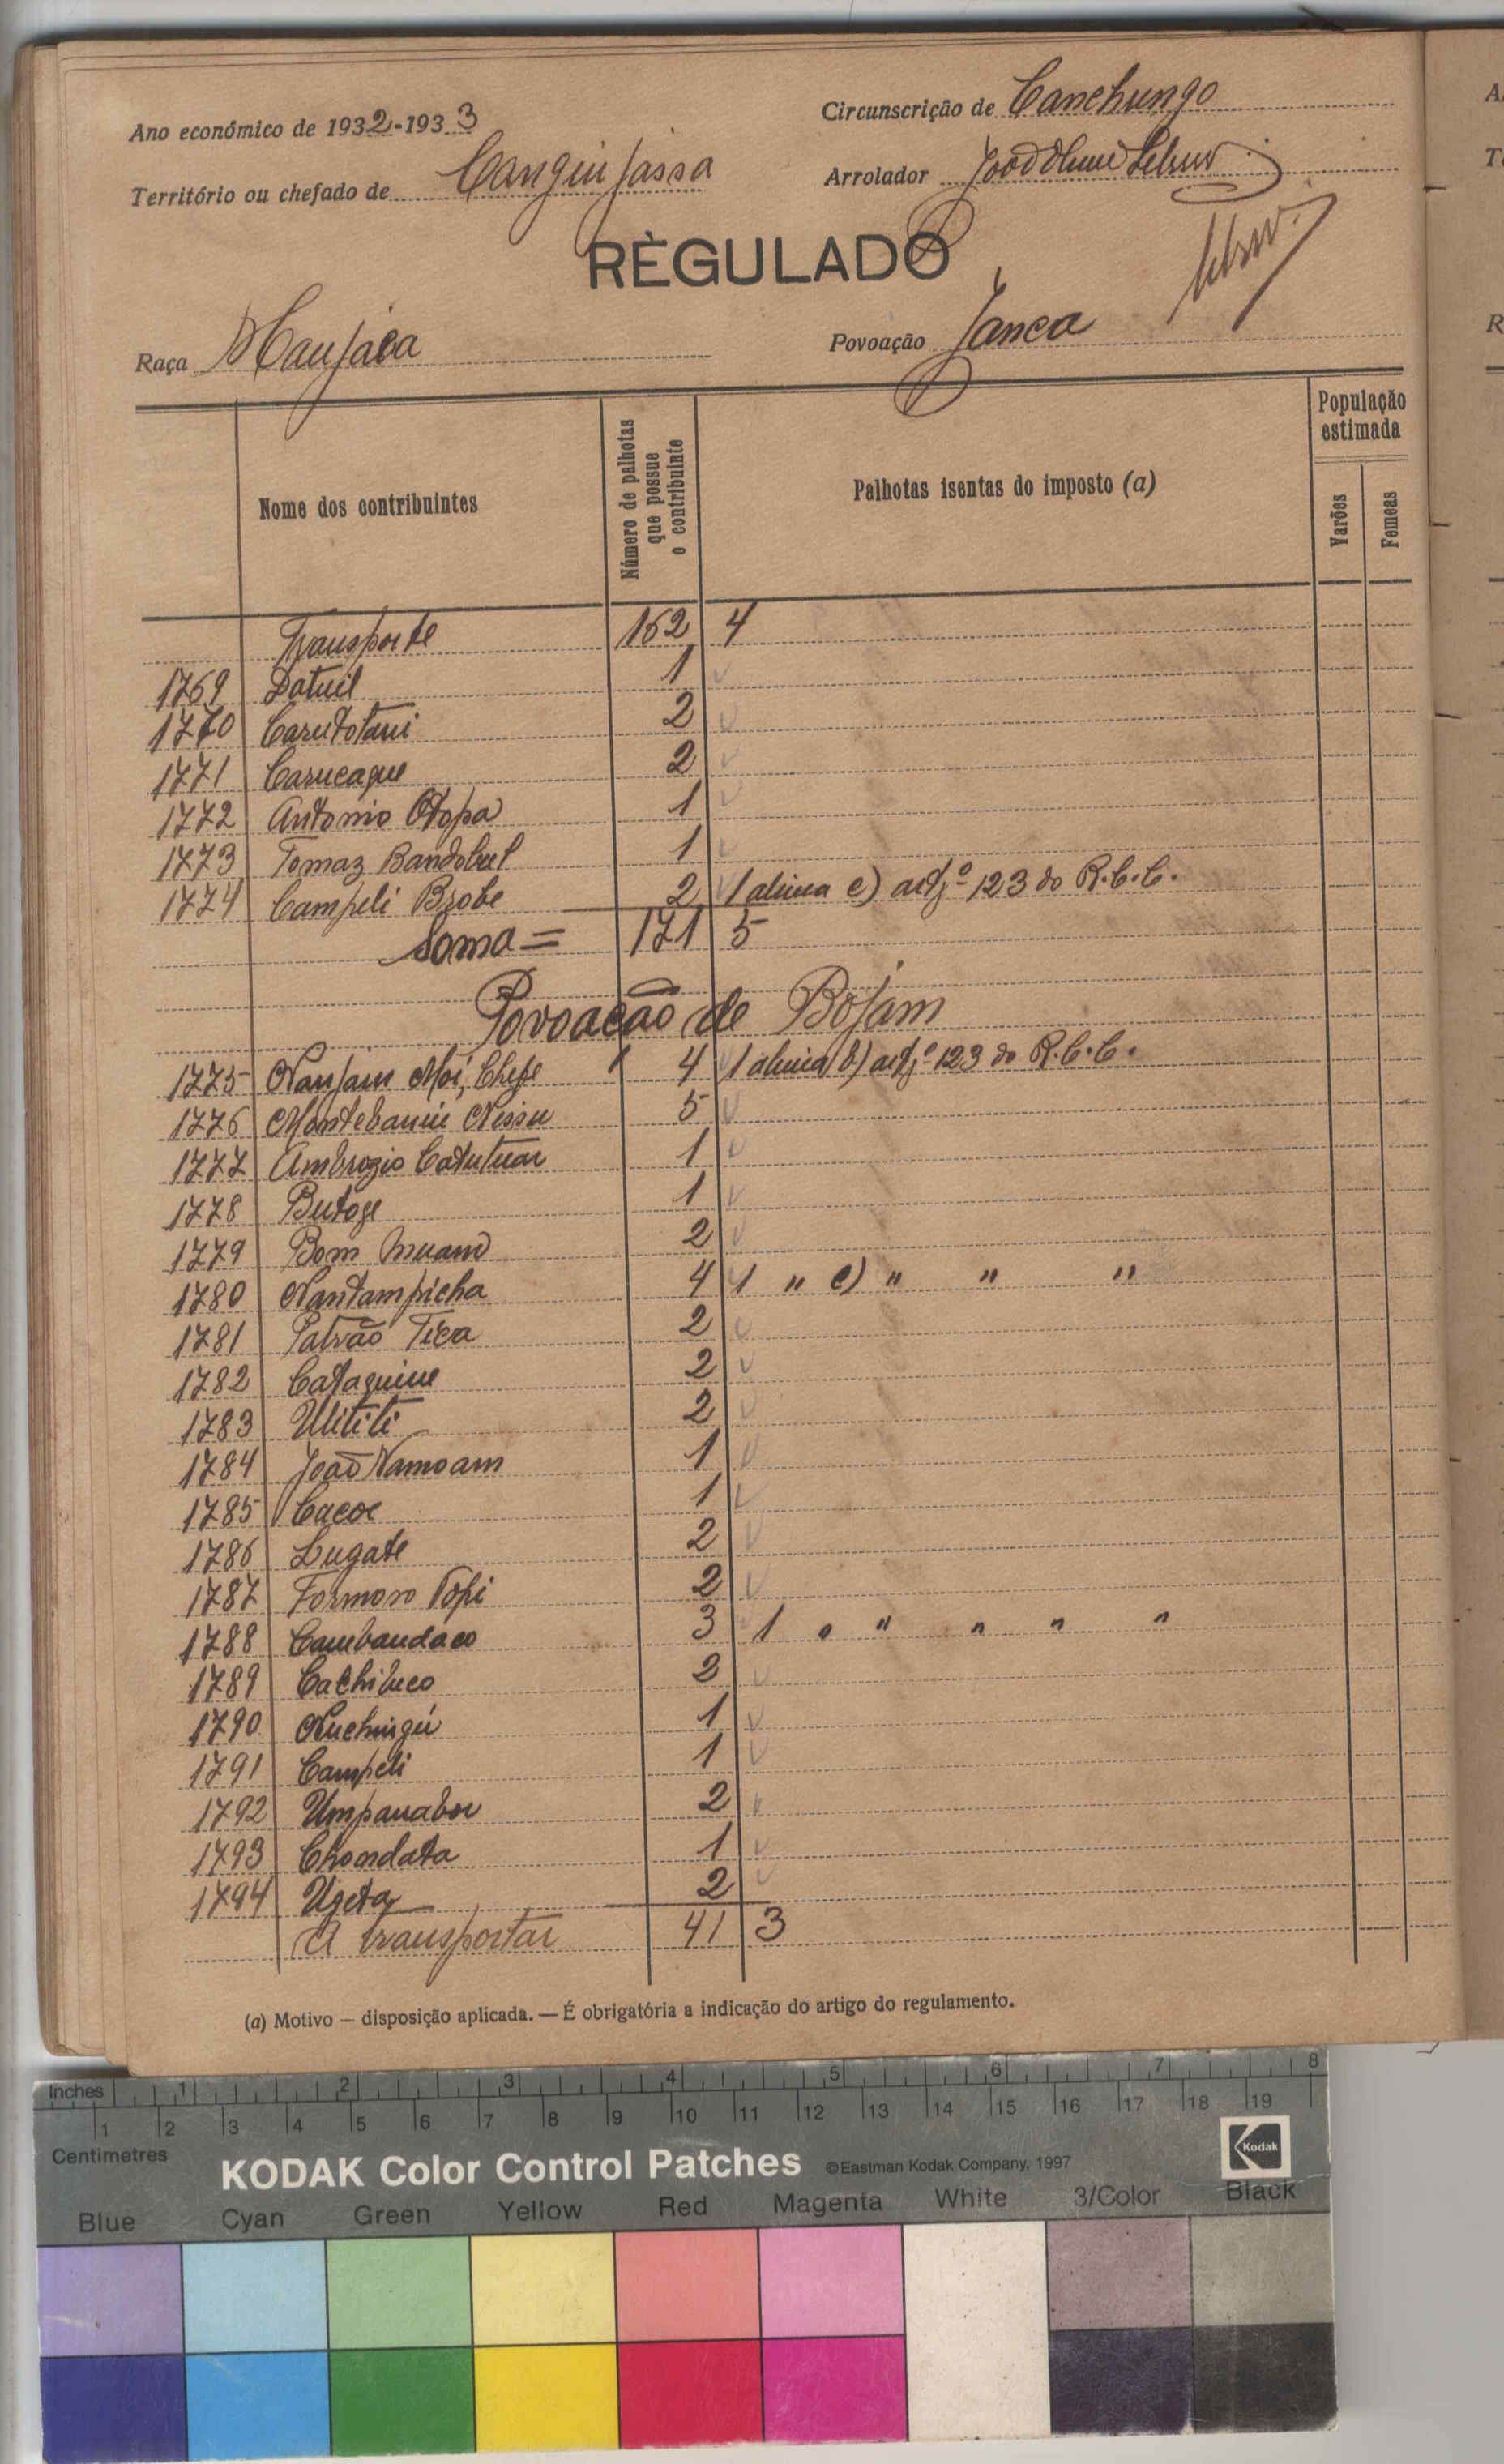 Ano económico de 1932-1933
Circunscrição de Canchungo
Território ou chefado de Canginjassa
Arrolador
RÈGULADO
Raça Manjáca
Povoação Janca
Nome dos contribuintes
Número de palhotas que possue o contribuinte
Palhotas isentas do imposto (a)
População estimada
Varões
Femeas
Transporte 162 4
1769 Datuil 1
1770 Carutotani 2
1771 Carucaque 2
1772 Antonio Otopa 1
1773 Tomaz Bandobul 1
1774 Campeli Brobe 2 1 alinea c) artgº 123 do R.C.C.
Soma = 171 5
Povoação de Bojam
1775 Nanjam Moi, Chefe 4 1 alinea b) artgº 123 do R.C.C.
1776 Montebanin Nissu 5
1777 Ambrozio Catutuar 1
1778 Butoge 1
1779 Bom 2
1780 Nantampicha 4 1 " c) " " "
1781 Patrão Tica 2
1782 Cataquine 2
1783 Ulititi 2
1784 João Namoam 1
1785 Cacoe 1
1786 Lugate 2
1787 Formoso Topi 2
1788 Cambandaco 3 1 " " " " "
1789 Cachibuco 2
1790 Nuchingú 1
1791 Campeli 1
1792 Umpanabou 2
1793 Chondata 1
1794 Ugeta 2
A transportar 41 3
(a) Motivo — disposição aplicada. — É obrigatória a indicação do artigo do regulamento.
Inches 1 2 3 4 5 6 7 8
1 2 3 4 5 6 7 8 9 10 11 12 13 14 15 16 17 18 19
Centimetres
KODAK Color Control Patches ©Eastman Kodak Company, 1997
Kodak
Blue Cyan Green Yellow Red Magenta White 3/Color Black